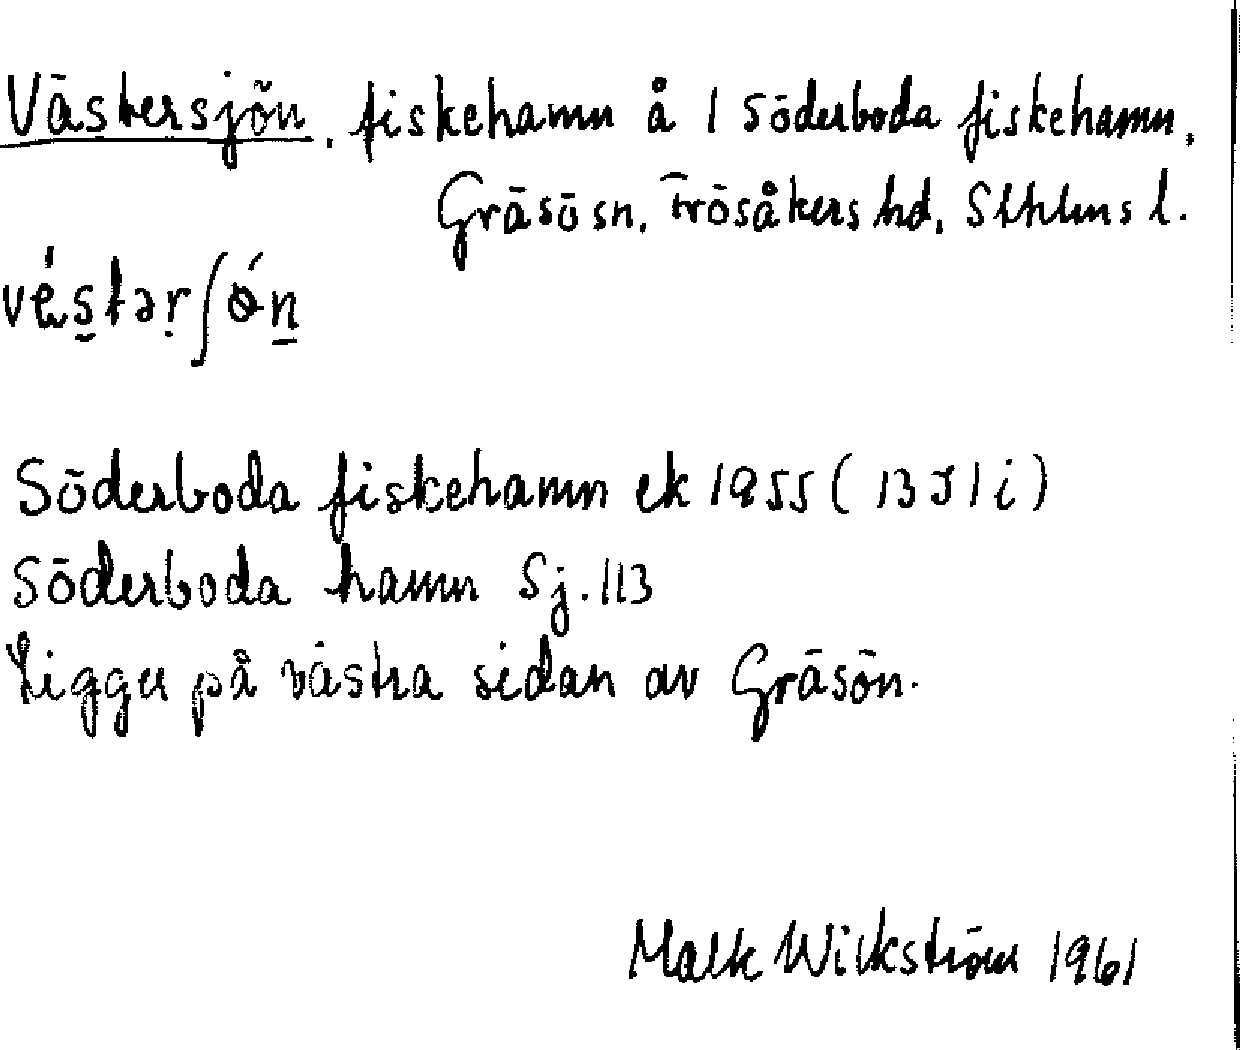 Västersjön, fiskehamn å 1 Söderboda fiskehamn,
Gräsö sn, Frösåkers hd, Sthlms l.
véstərʃǿn
Söderboda fiskehamn ek 1955 (13J1i)
Söderboda hamn Sj. 113
Ligger på västra sidan av Gräsön.
Wickström 1961